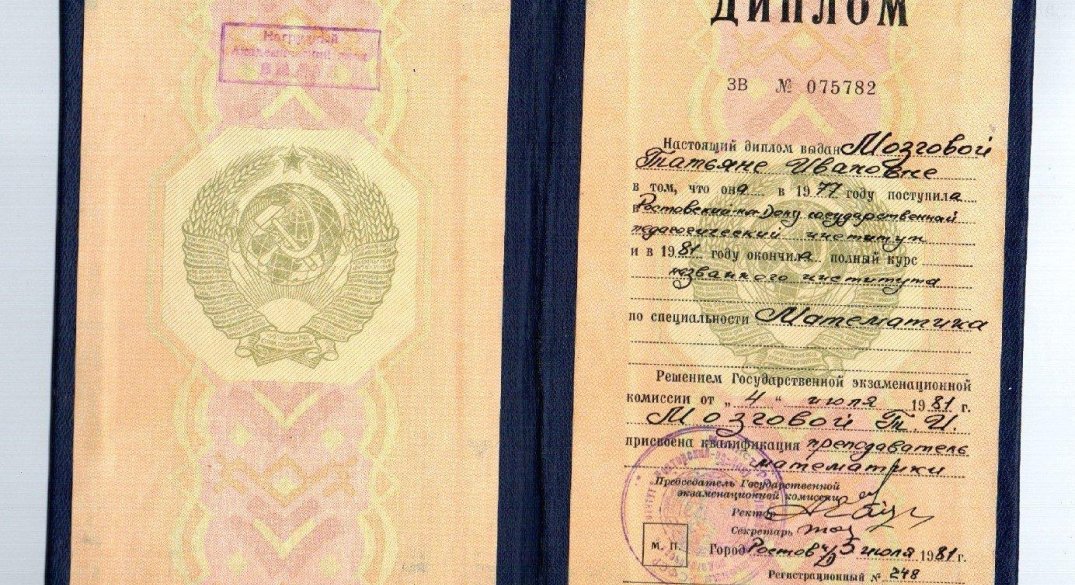 ДИПЛОМ
ЗВ № 075782
Настоящий диплом выдан Мозговой
Татьяне Ивановне
в том, что она в 1977 году поступила
в Ростовский-на-Дону государственный
педагогический институт
и в 1981 году окончила полный курс
названного института
по специальности Математика
Решением Государственной экзаменационной
комиссии от „4“ июля 1981 г.
Мозговой Т. И.
присвоена квалификация преподаватель
математики
Председатель Государственной
экзаменационной комиссии
Ректор
Секретарь
М. П. Город Ростов н/Д 5 июля 1981 г.
Регистрационный № 248